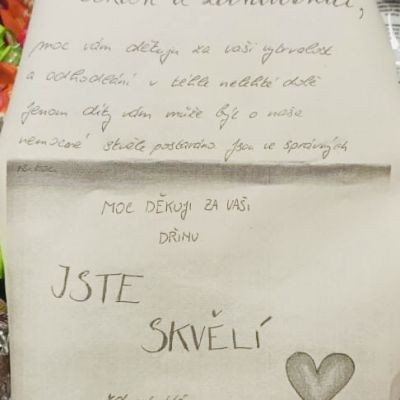 moc vám děkuju za vaši vytrvalost
a odhodlání v těhle nelehké době
jenom díky vám může být o naše
nemocné skvěle postaráno. Jsou ve správných
MOC DĚKUJI ZA VAŠI
DŘINU
JSTE
SKVĚLÍ